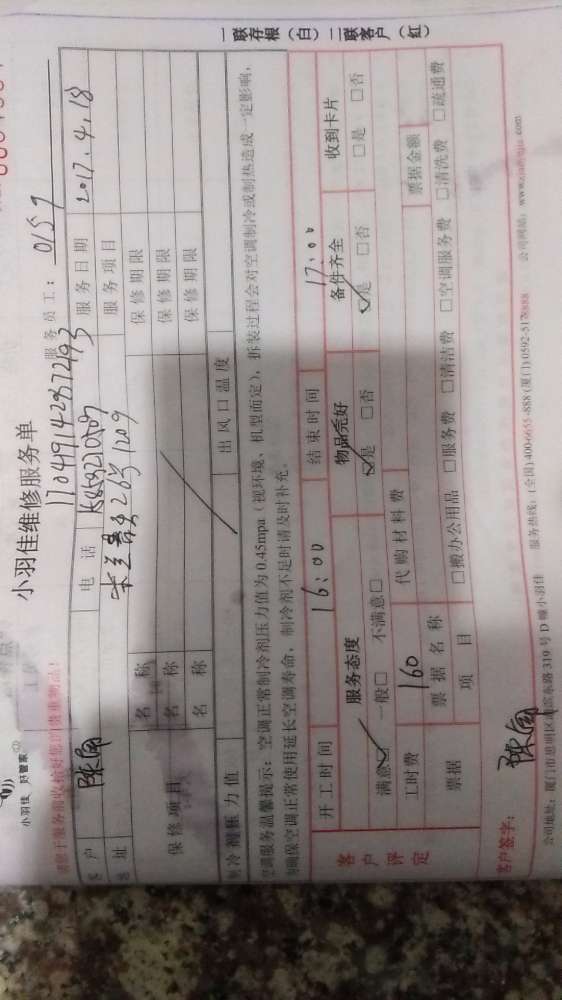 小羽佳 好管家
小羽佳维修服务单
17049142372493
服务员工：0157
请您于服务前收检好您的贵重物品！
客户 陈 电话 服务日期 2017.4.18
地址 26号1209 服务项目
保修项目 名称 保修期限
名称 保修期限
名称 保修期限
制冷剂压力值 出风口温度
空调服务温馨提示：空调正常制冷剂压力值为0.45mpa（视环境、机型而定），拆装过程会对空调制冷或制热造成一定影响，
为确保空调正常使用延长空调寿命，制冷剂不足时请及时补充。
开工时间 16:00 结束时间 17:00
客户评定
服务态度 物品完好 备件齐全 收到卡片
满意☑ 一般□ 不满意□ ☑是 □否 ☑是 □否 □是 □否
工时费 160 代购材料费
票据 票据名称 票据金额
项目 □搬办公用品 □服务费 □清洁费 □空调服务费 □清洗费 □疏通费
客户签字： 陈
公司地址：厦门市思明区湖滨东路319号D幢小羽佳 服务热线：(全国)400-6655-888 (厦门)0592-5178888 公司网站：www.xiaoyujia.com
一联存根（白）二联客户（红）